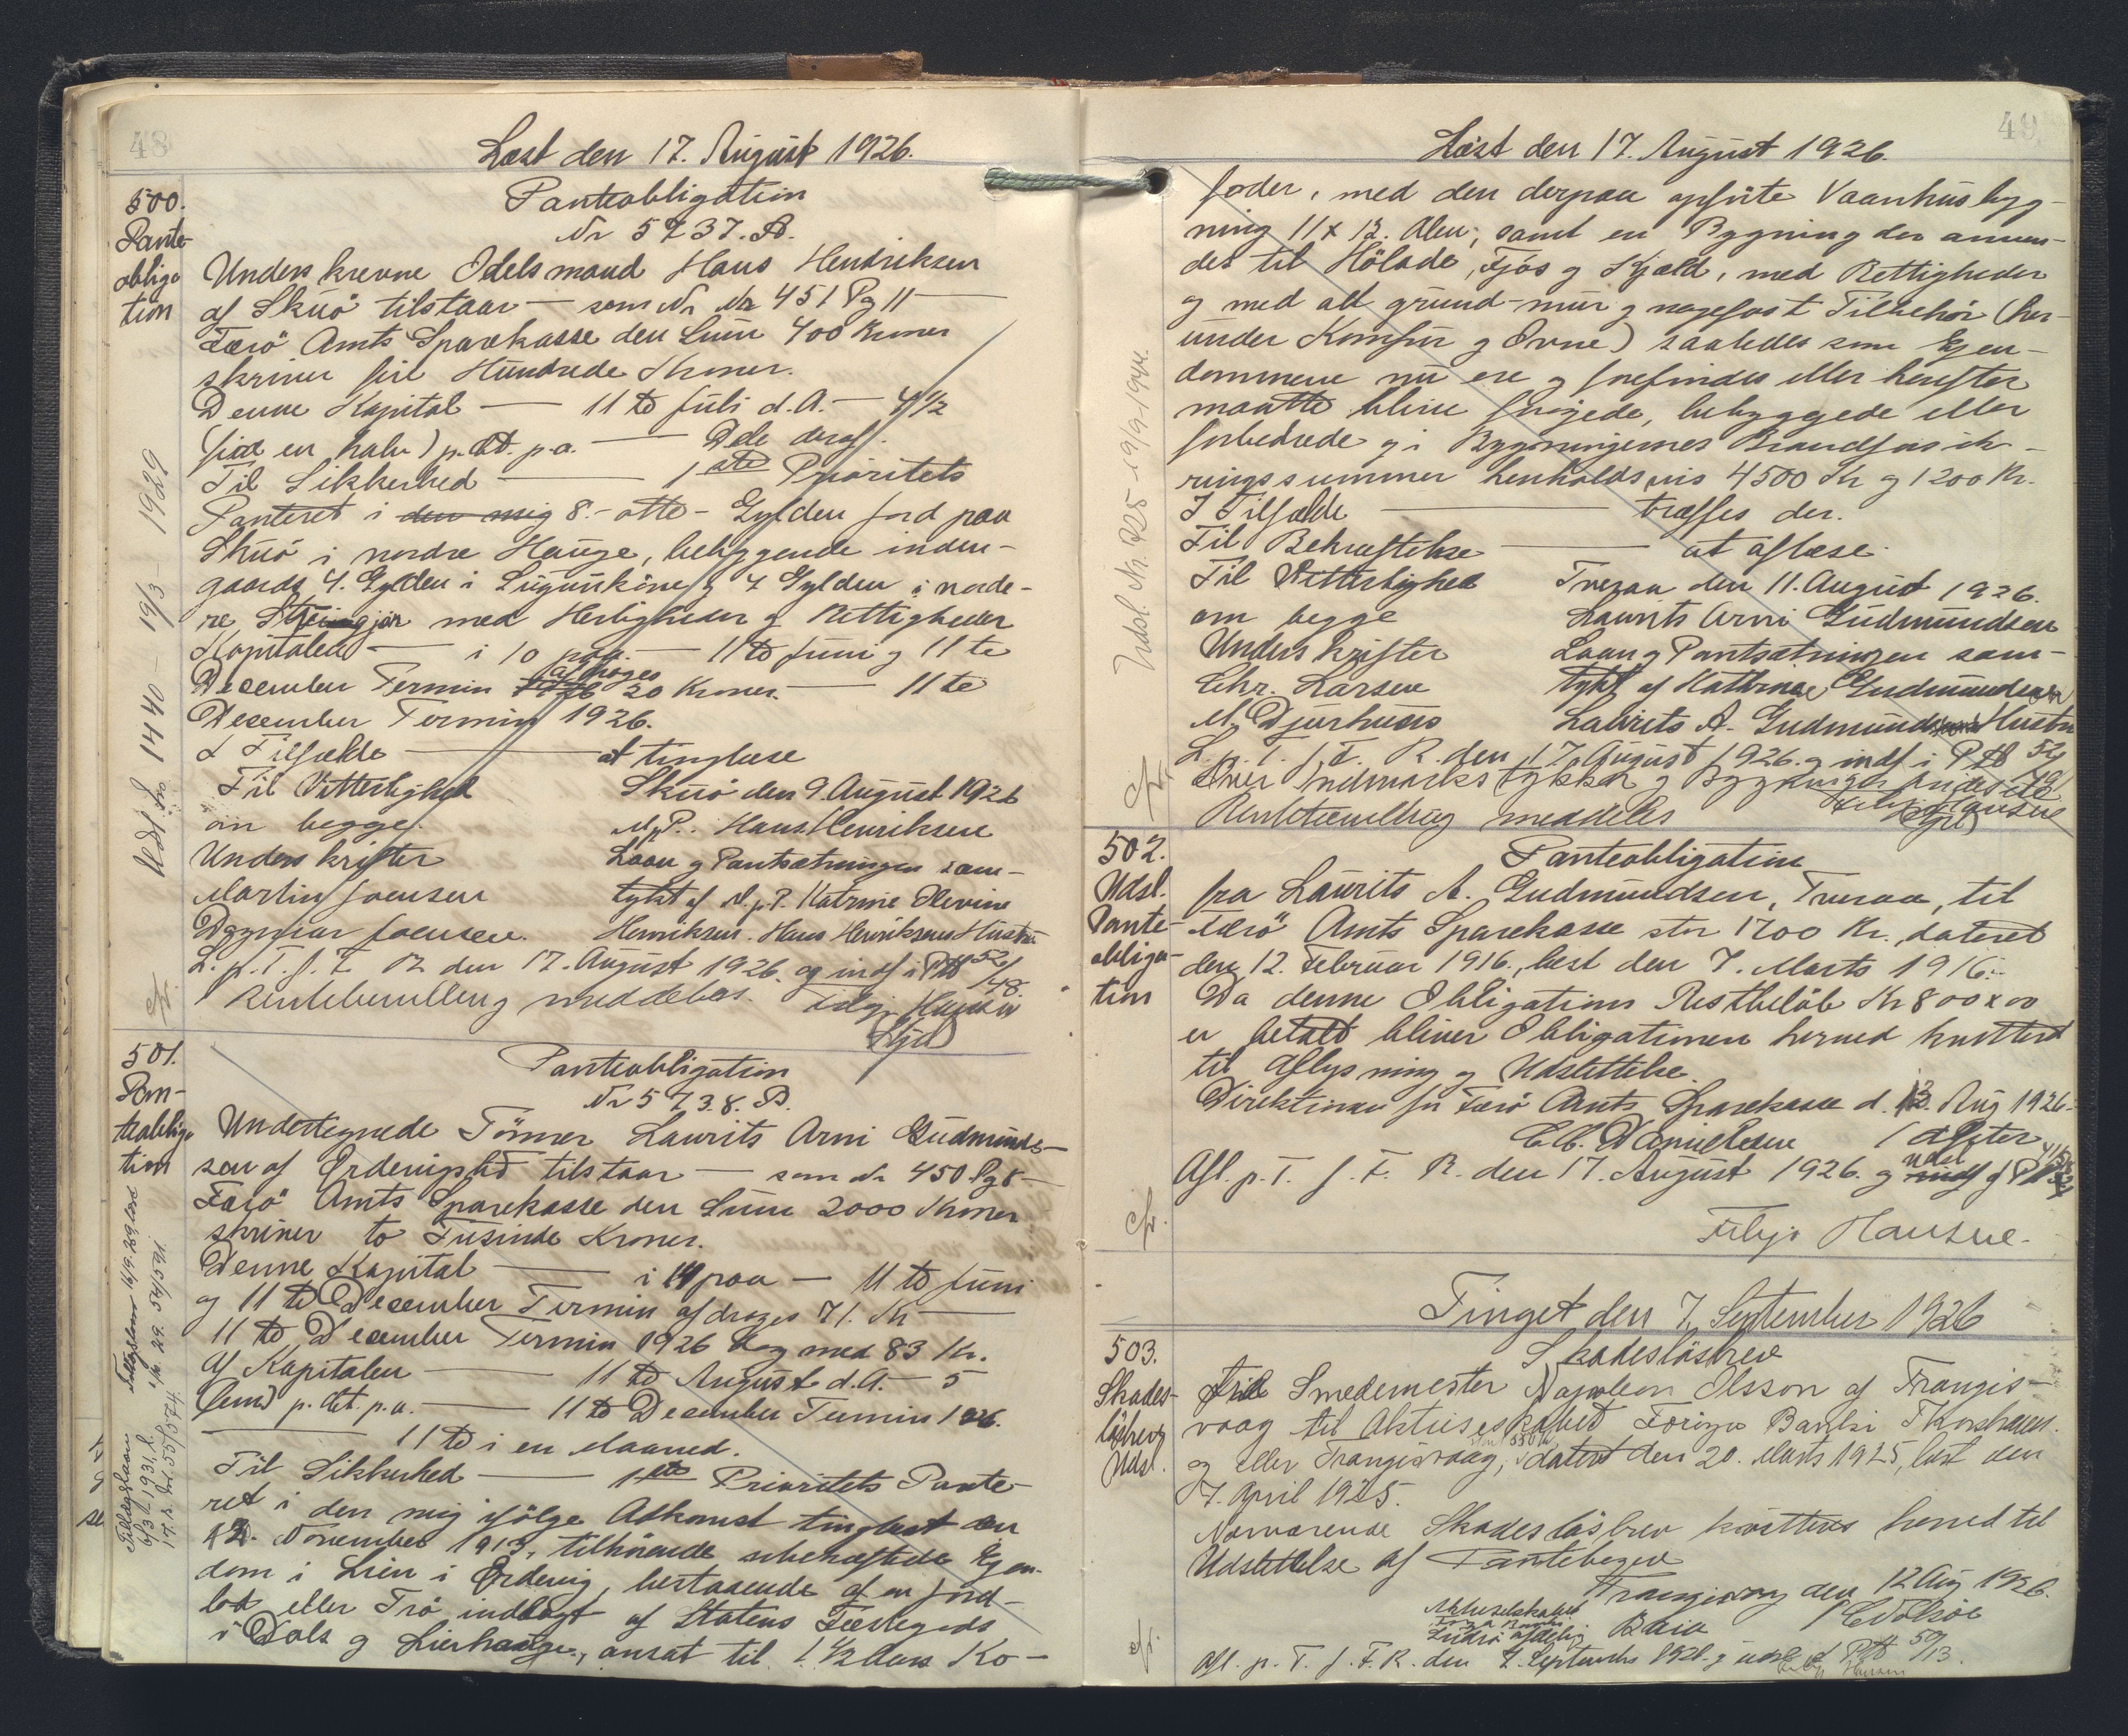 48
Læst den 17. August 1926.
500.
Pante-
obliga
tion
Panteobligation
Nr 5737. B.
Underskrevne Odelsmand Hans Hendriksen
af Skuö tilstaar — som Nr 451 Pg 11 —
Færö Amts Sparekasse den Sum 400 Kroner
skriver fire Hundrede Kroner.
Denne Kapital — 11 te Juli d. A. — 4 1/2
(fire en halv) p. Ct. p. a. — Dele deraf.
Til Sikkerhed — 1 ste Prioritets
Panteret i den mig 8 - otte - Gylden Jord paa
Skuö i nordre Hauge, beliggende inden-
gaards, 4. Gylden i og 4 Gylden i norde-
re med Herligheder og Rettigheder
Kapitalen — i 10 paa — 11 te Juni og 11 te
December Termin afdrages 20 Kroner. — 11 te
December Termin 1926.
I Tilfælde — at tinglæse
Til Vitterlighed Skuö den 9. August 1926
om begge M. p. P. Hans Henriksen
Underskrifter Laan og Pantsætningen sam-
Martin Joensen tykt af M. p. P. Katrine Elevine
Dagmar Joensen. Henriksen. Hans Henriksens Hustru
L. p. T. f. F. R. den 17. August 1926. og indf i PB 52/48
Rentebevilling meddeles. Filip Hansen
Gjd
Udsl. fol 1440 - 19/3 - 1929
501.
Pan-
teobliga
tion
Panteobligation
Nr 5738. B.
Undertegnede Tömrer Laurits Arni Gudmunds-
sen af Ördevig tilstaar — som Nr 450 Pg 8 —
Færö Amts Sparekasse den Sum 2000 Kroner
skriver to Tusinde Kroner.
Denne Kapital — i 14 paa — 11 te Juni
og 11 te December Termin afdrages 71. Kr —
11 te December Termin 1926 dog med 83 Kr.
Af Kapitalen — 11 te August d. A. — 5
(fem) p. Ct. p. a. — 11 te December Termin 1926.
— 11 te i en Maaned.
Til Sikkerhed — 1ste Prioritets Pante-
ret i den mig ifölge Adkomst tinglæst den
12. November 1913, tilhörende Ejen-
dom i Lien i Ördevig, bestaaende af en Jord-
lod eller Trö indlagt af Statens Fæstegods
i Dals og Lierhauge, ansat til 1 1/2 Aars Ko-
49
Læst den 17. August 1926.
foder, med den derpaa opförte Vaanhusbyg-
ning 11 x 12. Alen, samt en Bygning der anven-
des til Hölade, Fjös og Kjæld, med Rettigheder
og med alt grund-mur og nagefast Tilbehör (her-
under Komfur og Ovne) saaledes som Ejen-
dommene nu ere og forefindes eller herefter
maatte blive foröjede, bebyggede eller
forbedrede og i Bygningernes Brandforsik-
ringssummer henholdsvis 4500 Kr og 1200 Kr.
I Tilfælde — træffes der.
Til Bekræftelse — at aflæse.
Til Vitterlighed Tveraa den 11. August 1926.
om begge Laurits Arni Gudmundsen
Underskrifter Laan og Pantsætningen sam-
Chr. Larsen tykt af Kathrine Gudmundsen
M. Djurhuus Laurits A. Gudmundsens Hustru
L. p. T. f. F. R. den 17 August 1926. og indf. i PB 52/
over Indmarksstykker og Bygninger
Rentebevilling meddeles
Filip Hansen
Gjd
Udsl. Nr. 225 - 19/9 1944.
502.
Udsl.
Pante-
obliga-
tion
Panteobligation
fra Laurits A. Gudmundsen, Tveraa, til
Færö Amts Sparekasse stor 1700 Kr., dateret
den 12. Februar 1916., læst den 7. Marts 1916.
Da denne Obligations Restbelöb Kr 800 x 00
er betalt bliver Obligationen herved kvitteret
til Aflysning og Udslettelse.
Direktionen for Færö Amts Sparekasse d. 13. Aug 1926.
C. Danielsen
Afl. p. T. f. F. R. den 17. August 1926. og udsl. af PB
Filip Hansen.
Tinget den 7. September 1926
503.
Skades-
lösbrev
Udsl.
Skadeslösbrev
Fra Smedemester Napoleon Olsson af Trangis-
vaag til Aktieselskabet Föroya Banki Thorshavn.
og eller Trangisvaag, dateret den 20. Marts 1925, læst den
7. April 1925.
Nærværende Skadeslösbrev kvitteres herved til
Udslettelse af Pantebogen
Trangisvaag den 12 Aug 1926.
Aktieselskabet
Föroya Banki
Suduroy afdeling
Afl. p. T. f. F. R. den 7. September 1926. og udsl. af PB 50/13.
Filip Hansen